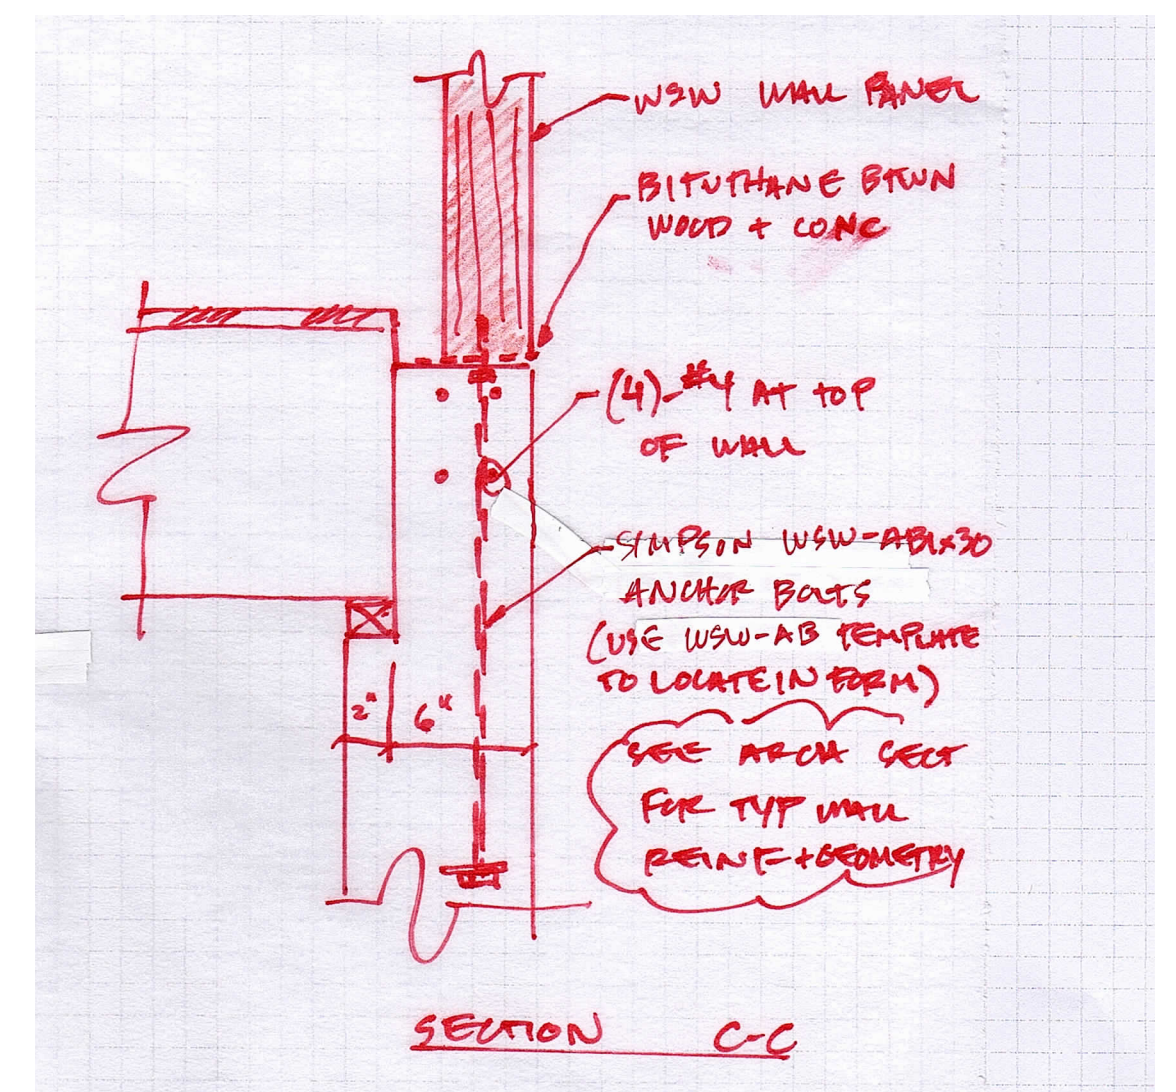 WSW WALL PANEL
BITUTHANE BTWN
WOOD + CONC
(4)-#4 AT TOP
OF WALL
SIMPSON WSW-AB1x30
ANCHOR BOLTS
(USE WSW-AB TEMPLATE
TO LOCATE IN FORM)
2" 6"
SEE ARCH SECT
FOR TYP WALL
REINF + GEOMETRY
SECTION C-C